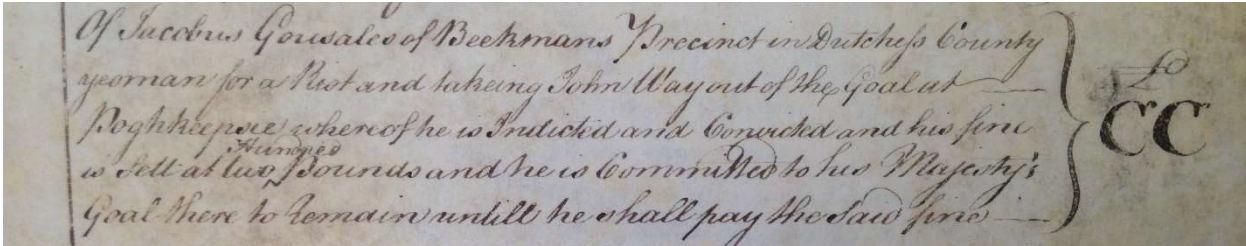 Of Jacobus Gonsales of Beekmans Precinct in Dutchess County
yeoman for a Riot and takeing John Way out of the Goal at
Poghkeepsie whereof he is Indicted and Convicted and his fine
is Sett at two Hundred Pounds and he is Committed to his Majesty's
Goal there to Remain untill he shall pay the Said fine
£
CC